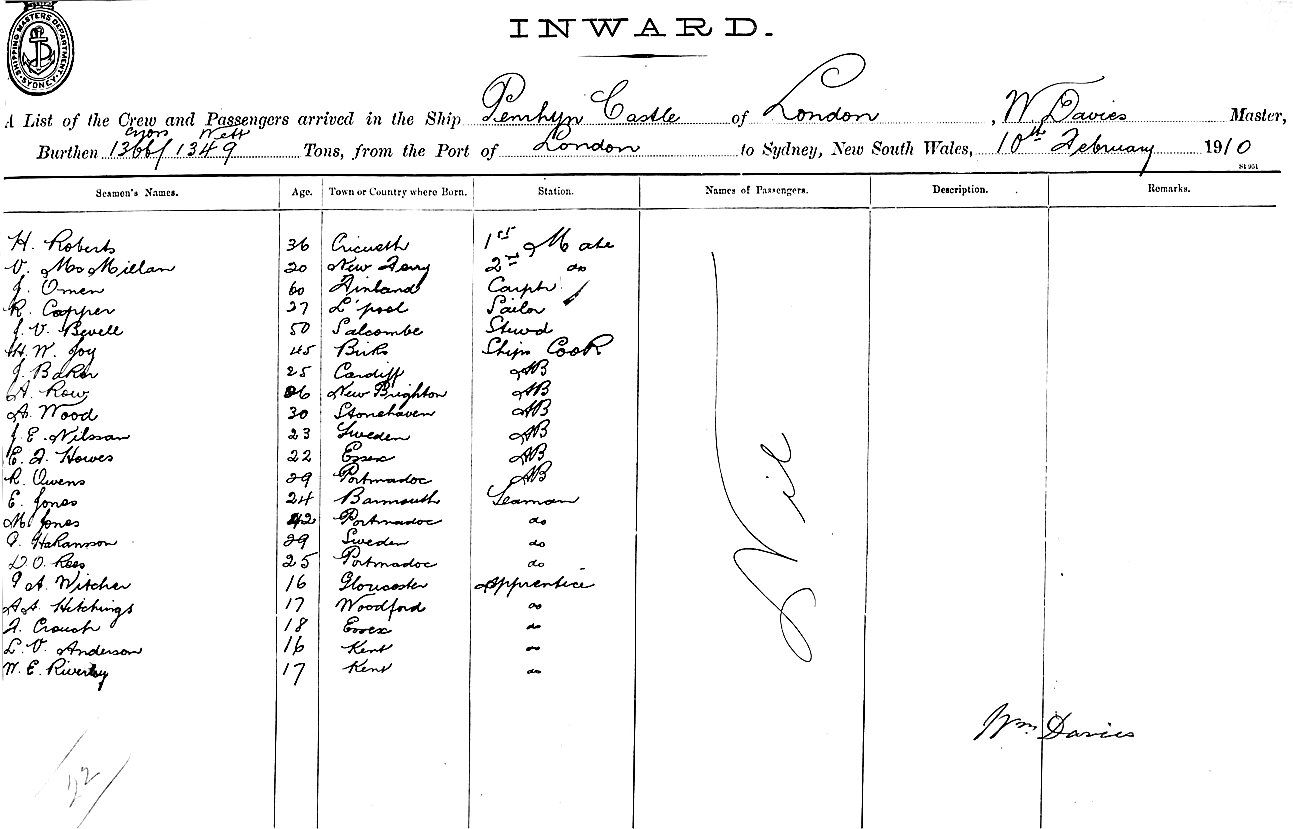 SHIPPING MASTERS DEPARTMENT SYDNEY
INWARD.
A List of the Crew and Passengers arrived in the Ship Penrhyn Castle of London, W Davies Master,
Burthen 1366/1349 Tons, from the Port of London to Sydney, New South Wales, 10th February 1910
Seamen's Names. Age. Town or Country where Born. Station. Names of Passengers. Description. Remarks.
H. Roberts 36 Criccieth 1st Mate
V. McMillan 20 New Ferry 2nd do
J. Omen 60 Finland Carptr
R. Capper 27 L'pool Sailor
J. V. Bevell 50 Salcombe Stewd
H. W. Joy 45 Ships Cook
J. Baker 25 Cardiff AB
A. Row 26 New Brighton AB
A. Wood 30 Stonehaven AB
J. E. Nilssan 23 Sweden AB
E. F. Howes 22 Essex AB
R. Owens 29 Portmadoc AB
E. Jones 24 Barmouth Seaman
M. Jones 42 Portmadoc do
Hakansson 29 Sweden do
D. O. Rees 25 Portmadoc do
A. Witcher 16 Gloucester Apprentice
A. A. Hitchings 17 Woodford do
A. Crouch 18 Essex do
L. V. Anderson 16 Kent do
W. E. 17 Kent do
Nil
Wm Davies
22